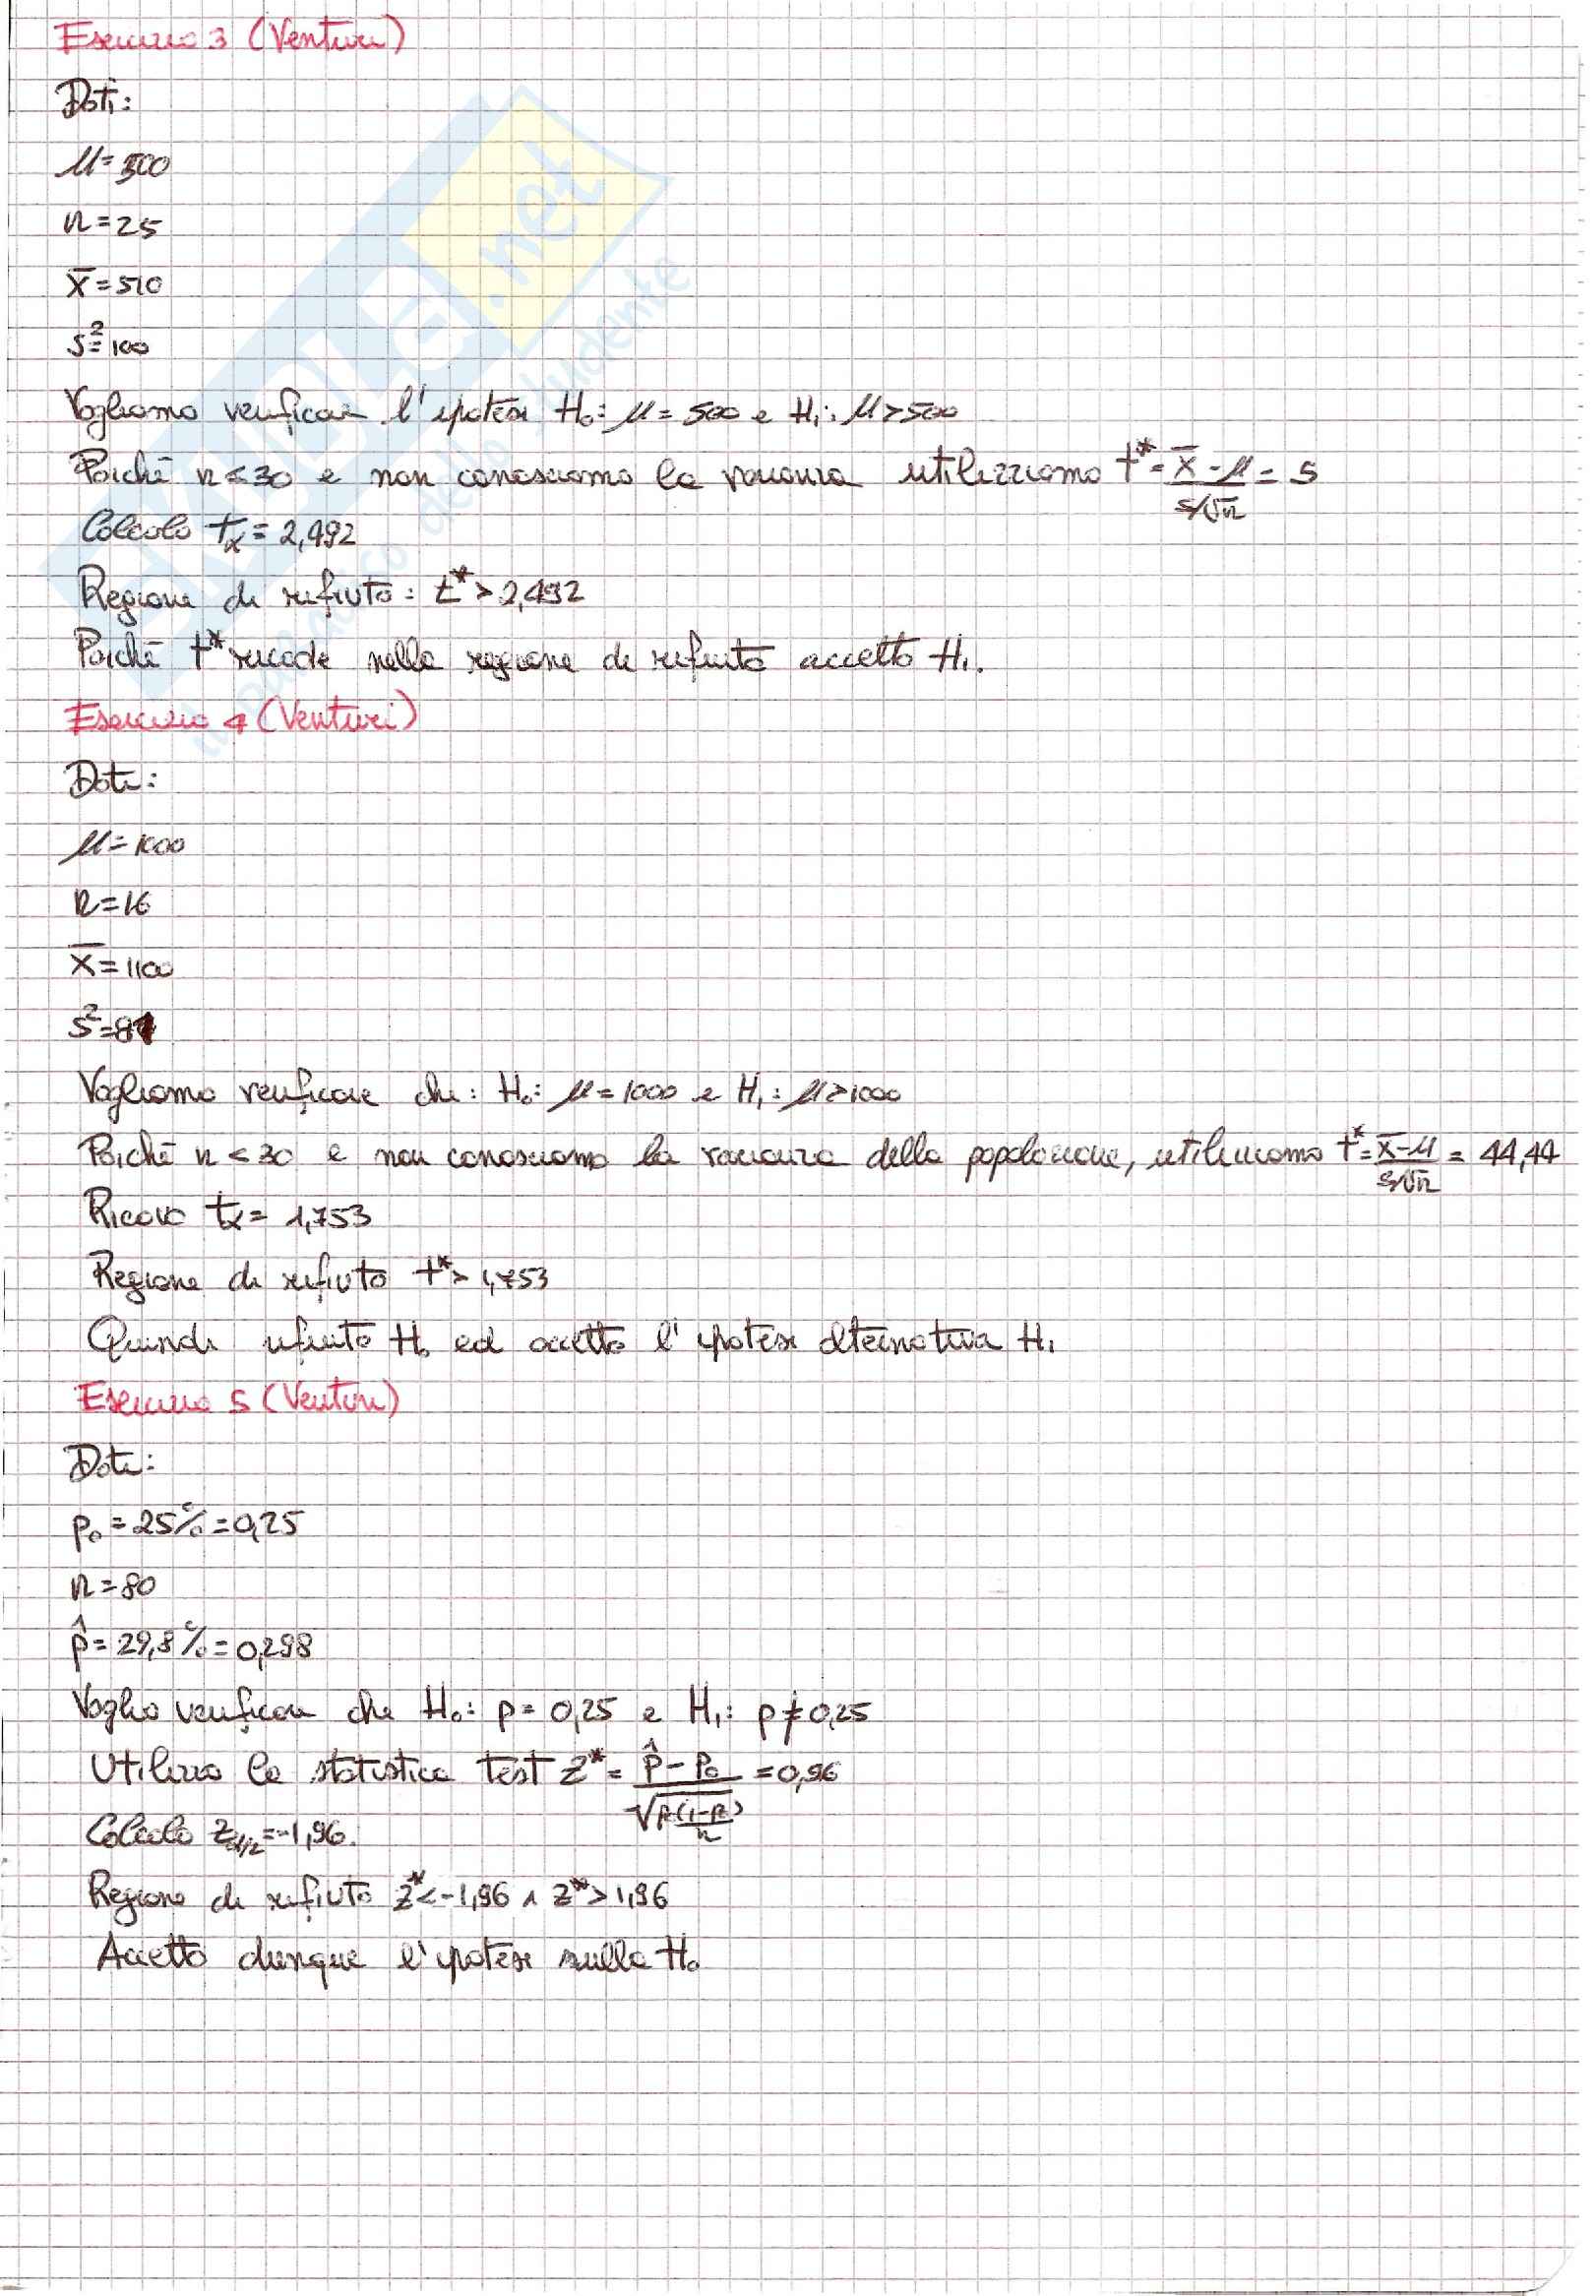 Esercizio 3 (Venturi)
Dati:
μ = 500
n = 25
x̄ = 510
s² = 100
Vogliamo verificare l'ipotesi H₀: μ = 500 e H₁: μ > 500
Poiché n < 30 e non conosciamo la varianza utilizziamo t* = (x̄ - μ)/(s/√n) = 5
Calcolo tα = 2,492
Regione di rifiuto: t* > 2,492
Poiché t* ricade nella regione di rifiuto accetto H₁.
Esercizio 4 (Venturi)
Dati:
μ = 1000
n = 16
x̄ = 1100
s² = 81
Vogliamo verificare che: H₀: μ = 1000 e H₁: μ > 1000
Poiché n < 30 e non conosciamo la varianza della popolazione, utilizziamo t* = (x̄ - μ)/(s/√n) = 44,44
Ricavo tα = 1,753
Regione di rifiuto t* > 1,753
Quindi rifiuto H₀ ed accetto l'ipotesi alternativa H₁
Esercizio 5 (Venturi)
Dati:
p₀ = 25% = 0,25
n = 80
p̂ = 29,8% = 0,298
Voglio verificare che H₀: p = 0,25 e H₁: p ≠ 0,25
Utilizzo la statistica test Z* = (p̂ - p₀)/√(p₀(1-p₀)/n) = 0,96
Calcolo z_α/2 = -1,96.
Regione di rifiuto z* < -1,96 ∧ z* > 1,96
Accetto dunque l'ipotesi nulla H₀
SKUOLA.net
il paradiso dello studente